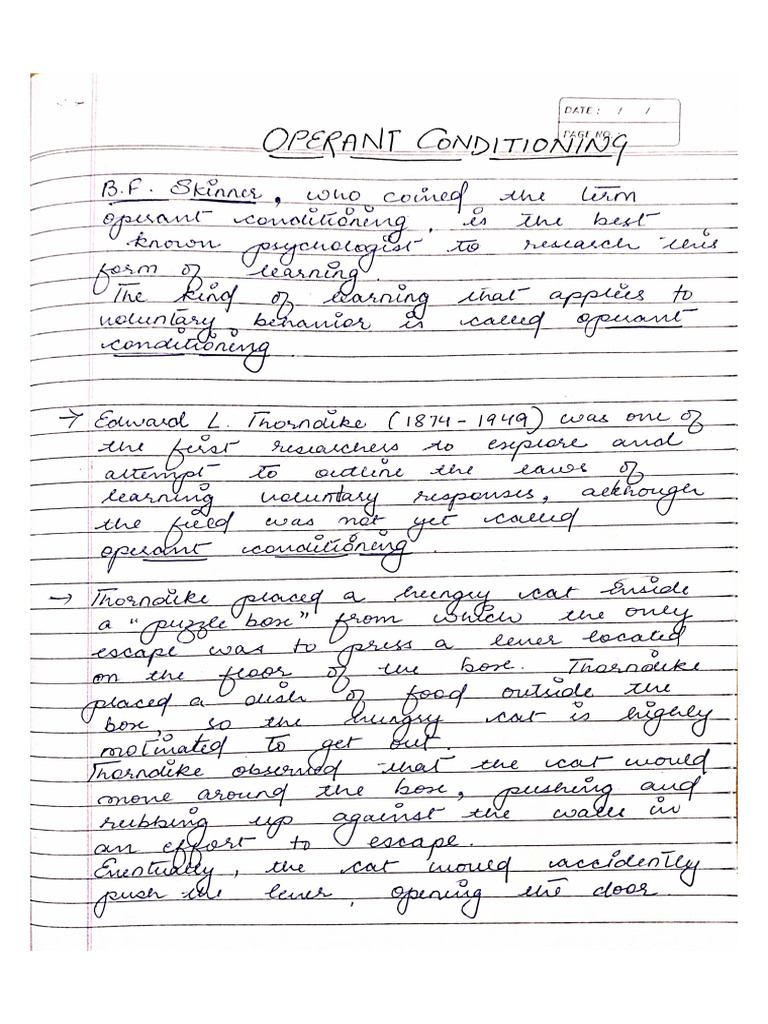 DATE: / /
PAGE NO.
OPERANT CONDITIONING
B.F. Skinner, who coined the term
operant conditioning, is the best
known psychologist to research this
form of learning.
The kind of learning that applies to
voluntary behavior is called operant
conditioning
→ Edward L. Thorndike (1874-1949) was one of
the first researchers to explore and
attempt to outline the laws of
learning voluntary responses, although
the field was not yet called
operant conditioning.
→ Thorndike placed a hungry cat inside
a "puzzle box" from which the only
escape was to press a lever located
on the floor of the box. Thorndike
placed a dish of food outside the
box, so the hungry cat is highly
motivated to get out.
Thorndike observed that the cat would
move around the box, pushing and
rubbing up against the walls in
an effort to escape.
Eventually, the cat would accidently
push the lever, opening the door.